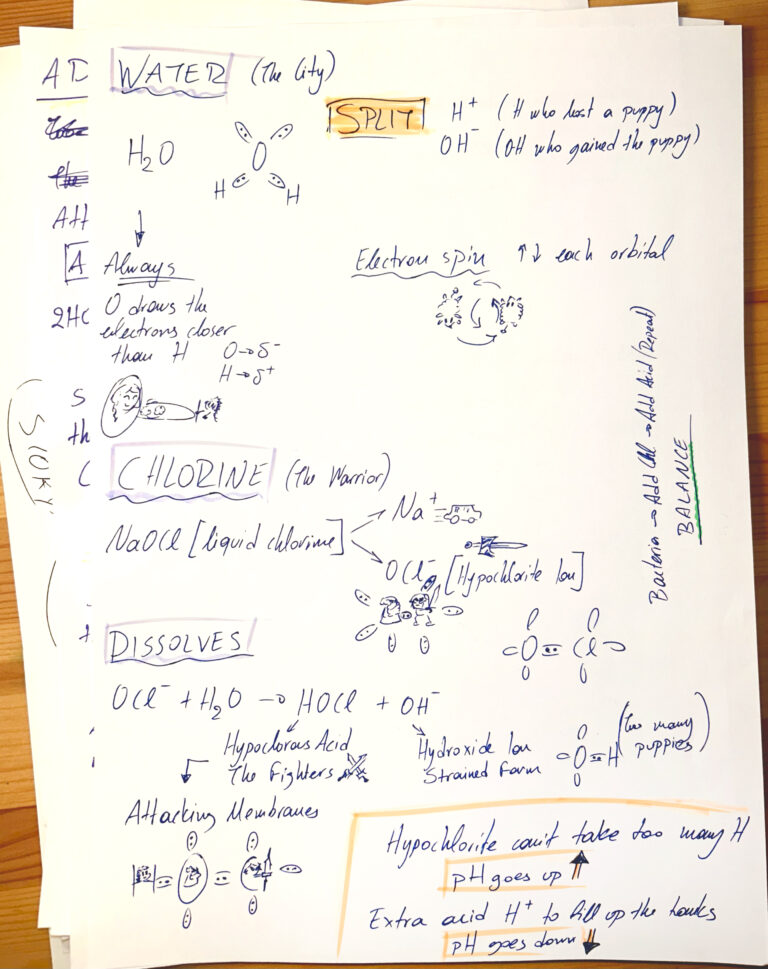 AD
WATER (The City)
SPLIT
H⁺ (H who lost a puppy)
OH⁻ (OH who gained the puppy)
H₂O
O
H H
Att
A
Always
Electron spin ↑↓ each orbital
2HC
O draws the
electrons closer
than H O→δ⁻
H→δ⁺
S
th
C
CHLORINE (The Warrior)
NaOCl [liquid chlorine]
Na⁺
OCl⁻ [Hypochlorite Ion]
Bacteria → Add Chl → Add Acid (Repeat)
BALANCE
DISSOLVES
O Cl
OCl⁻ + H₂O → HOCl + OH⁻
Hypoclorous Acid
The Fighters
Hydroxide Ion
Strained Farm
O H
(too many
puppies)
Attacking Membranes
Hypochlorite can't take too many H
pH goes up ↑
Extra acid H⁺ to fill up the
pH goes down ↓